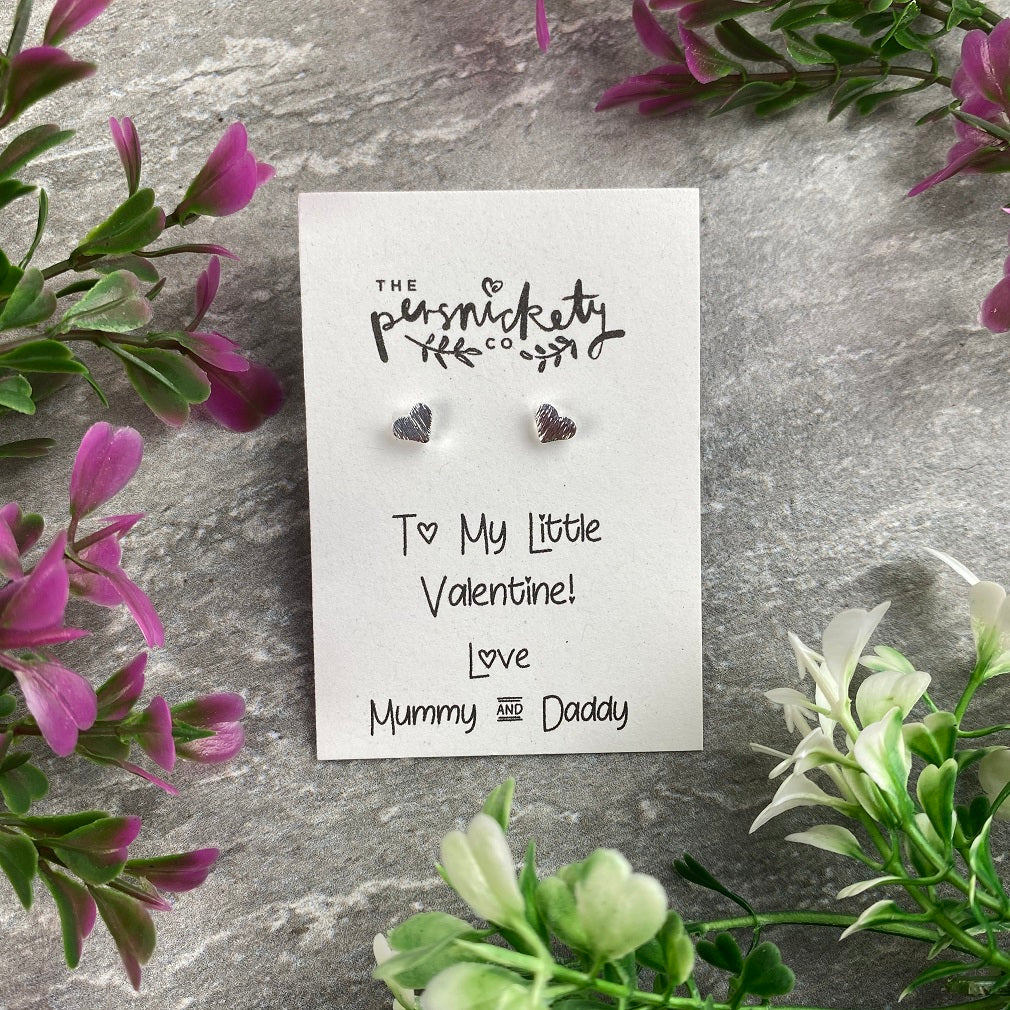 THE
persnickety
CO
To My Little
Valentine!
Love
Mummy AND Daddy